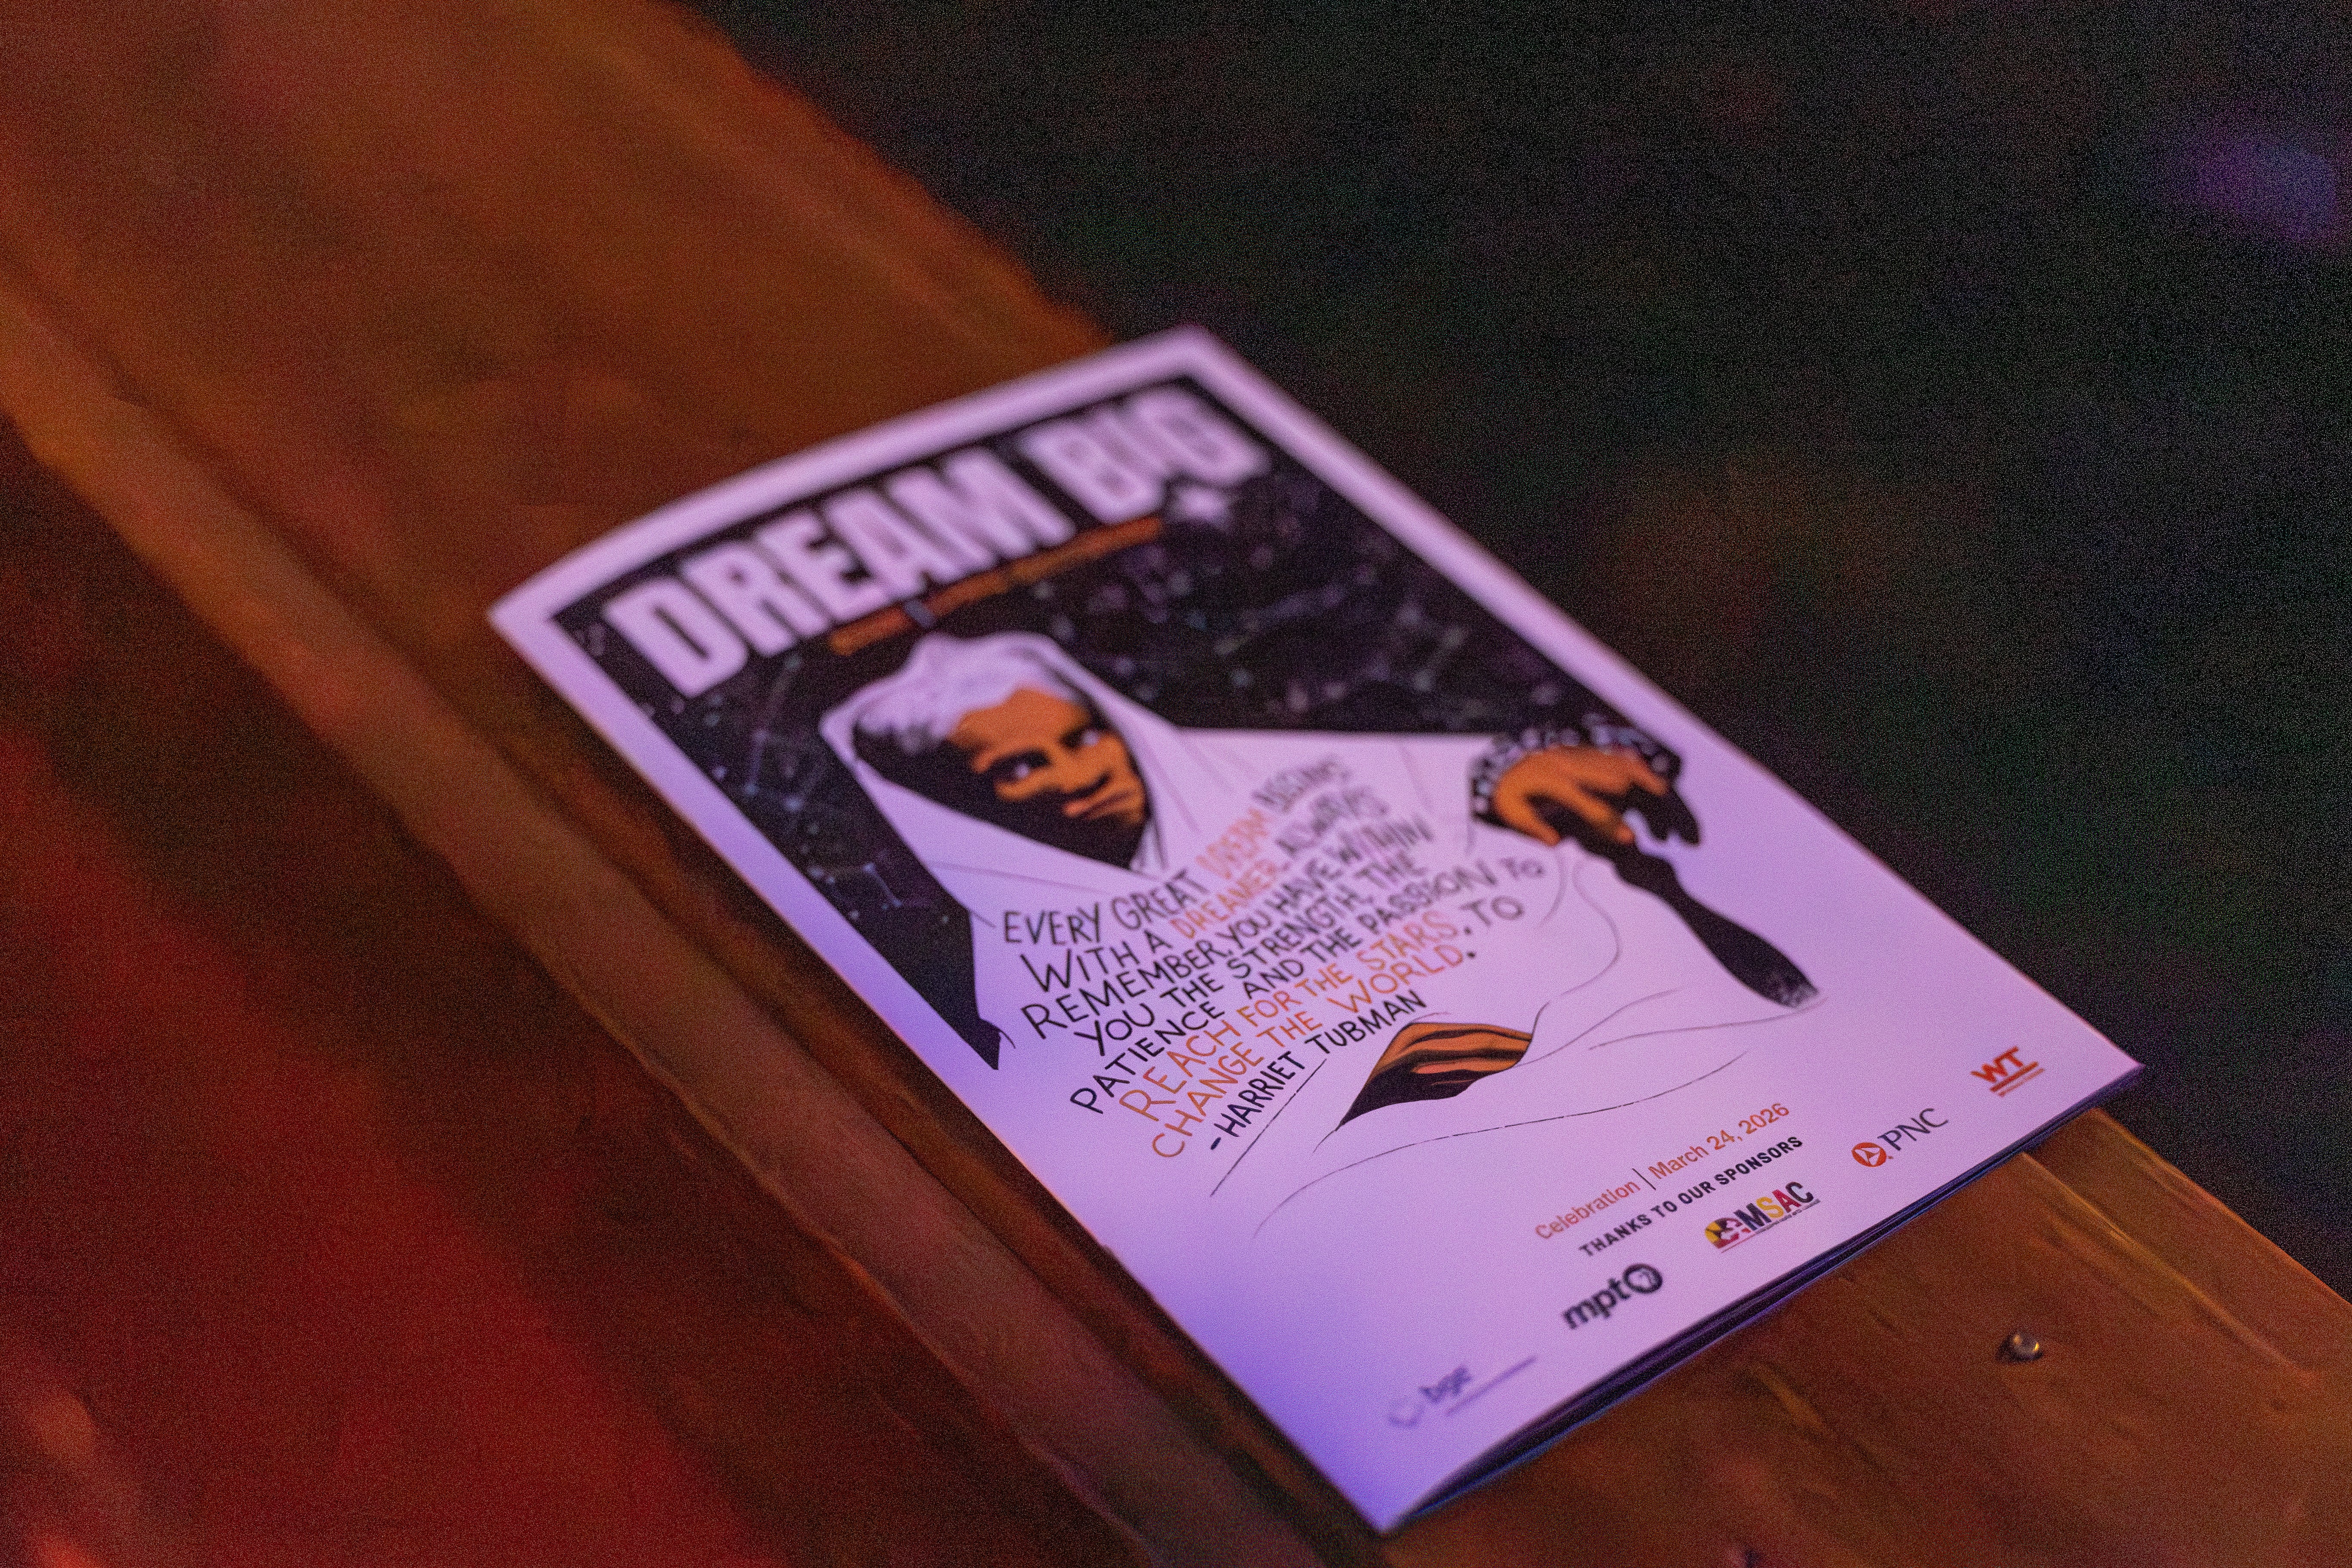 DREAM BIG
EVERY GREAT DREAM BEGINS
WITH A DREAMER. ALWAYS
REMEMBER, YOU HAVE WITHIN
YOU THE STRENGTH, THE
PATIENCE AND THE PASSION TO
REACH FOR THE STARS, TO
CHANGE THE WORLD.
-HARRIET TUBMAN
Celebration | March 24, 2026
THANKS TO OUR SPONSORS
bge
mpt
MSAC
PNC
WT